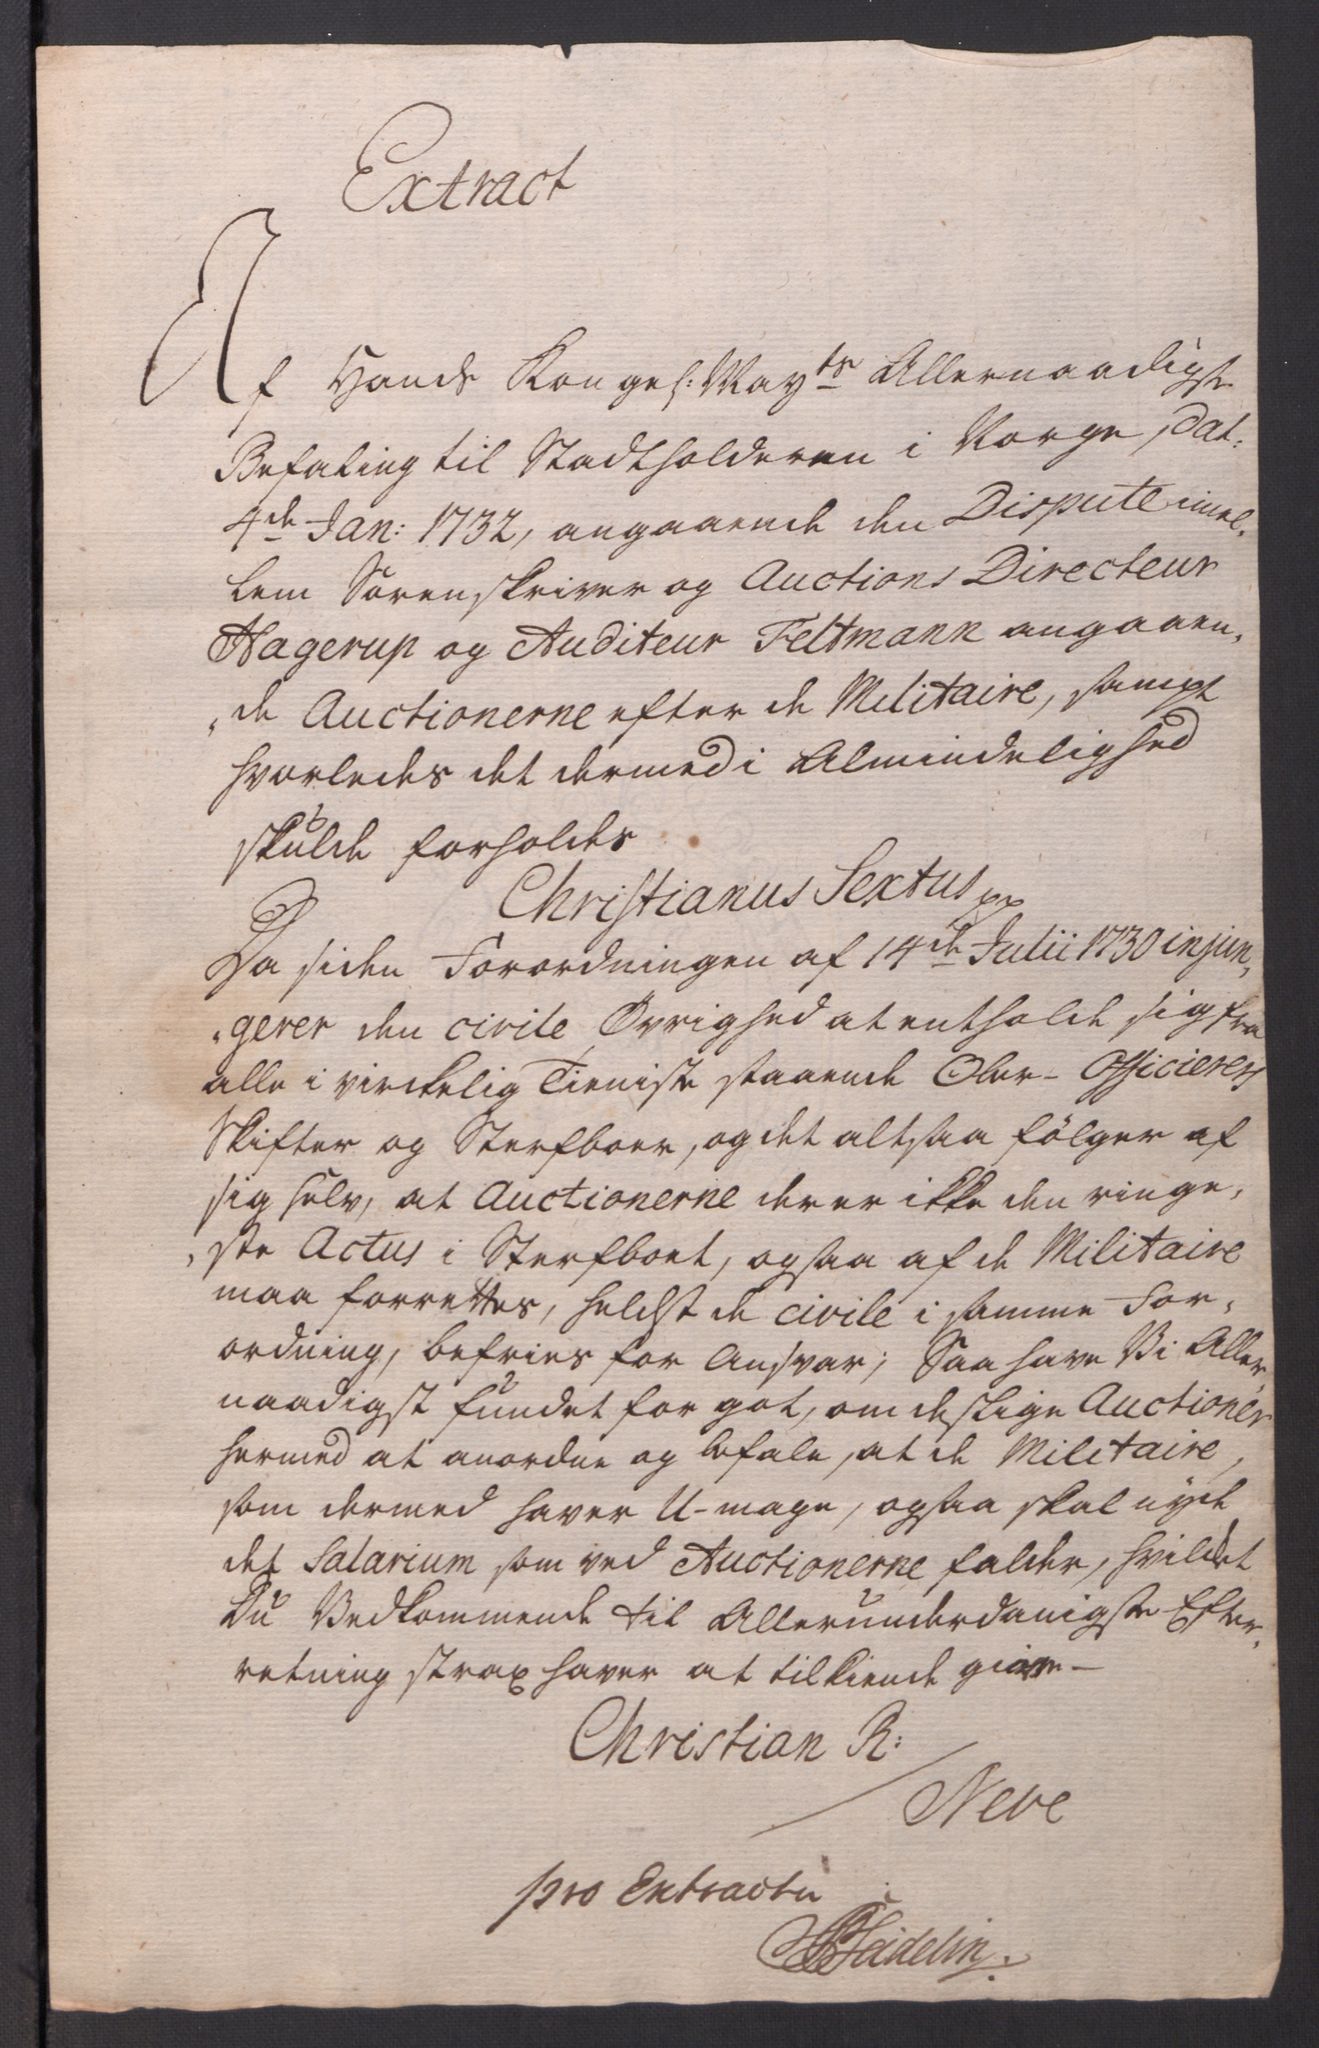 Extract
Af Hands Kongel: May<sup>ts</sup> Allernaadigste
Befaling til Stadtholderen i Norge, Dat:
4<sup>de</sup> Jan: 1732, angaaende den Dispute imel-
lem Sorenskriver og Auctions Directeur
Hagerup og Auditeur Feltmann angaaen-
-de Auctionerne efter de Militaire, sampt
hvorledes det dermed i Almindelighed
skulde forholdes
Christianus Sextus pp
Da siden Forordningen af 14<sup>de</sup> Julii 1730 injun-
-gerer den civile Øvrighed at entholde sig fra
alle i virckelig Tieniste staaende Ober-Officierers
Skifter og Sterfboer, og det altsaa følger af
sig selv, at Auctionerne der er ikke den ringe-
-ste Actus i Sterfboet, ogsaa af de Militaire
maa forrettes, heldst de civile i samme For-
ordning, befries for Ansvar; Saa have Vi Aller-
naadigst fundet for got, om deslige Auctioner
hermed at anordne og befale, at de Militaire,
som dermed haver U-mage, ogsaa skal nyde
det Salarium som ved Auctionerne falder, hvilcket
Du Vedkommende til Allerunderdanigste Efter-
retning strax haver at tilkiende give—
Christian R:
/ Neve
pro Extractu
Heidelin.